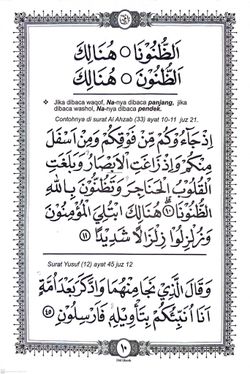 اَلظُّنُوْنَا ○ هُنَالِكَ
اَلظُّنُوْنَ ○ هُنَالِكَ
❖ Jika dibaca waqof, Na-nya dibaca panjang, jika
dibaca washol, Na-nya dibaca pendek.
Contohnya di surat Al Ahzab (33) ayat 10-11 juz 21.
اِذْ جَاۤءُوْكُمْ مِّنْ فَوْقِكُمْ وَمِنْ اَسْفَلَ
مِنْكُمْ وَاِذْ زَاغَتِ الْاَبْصَارُ وَبَلَغَتِ
الْقُلُوْبُ الْحَنَاجِرَ وَتَظُنُّوْنَ بِاللّٰهِ
الظُّنُوْنَا ۝١٠ هُنَالِكَ ابْتُلِيَ الْمُؤْمِنُوْنَ
وَزُلْزِلُوْا زِلْزَالًا شَدِيْدًا ۝١١
Surat Yusuf (12) ayat 45 juz 12
وَقَالَ الَّذِيْ نَجَا مِنْهُمَا وَادَّكَرَ بَعْدَ اُمَّةٍ
اَنَا۠ اُنَبِّئُكُمْ بِتَأْوِيْلِهٖ فَاَرْسِلُوْنِ ۝٤٥
١٠